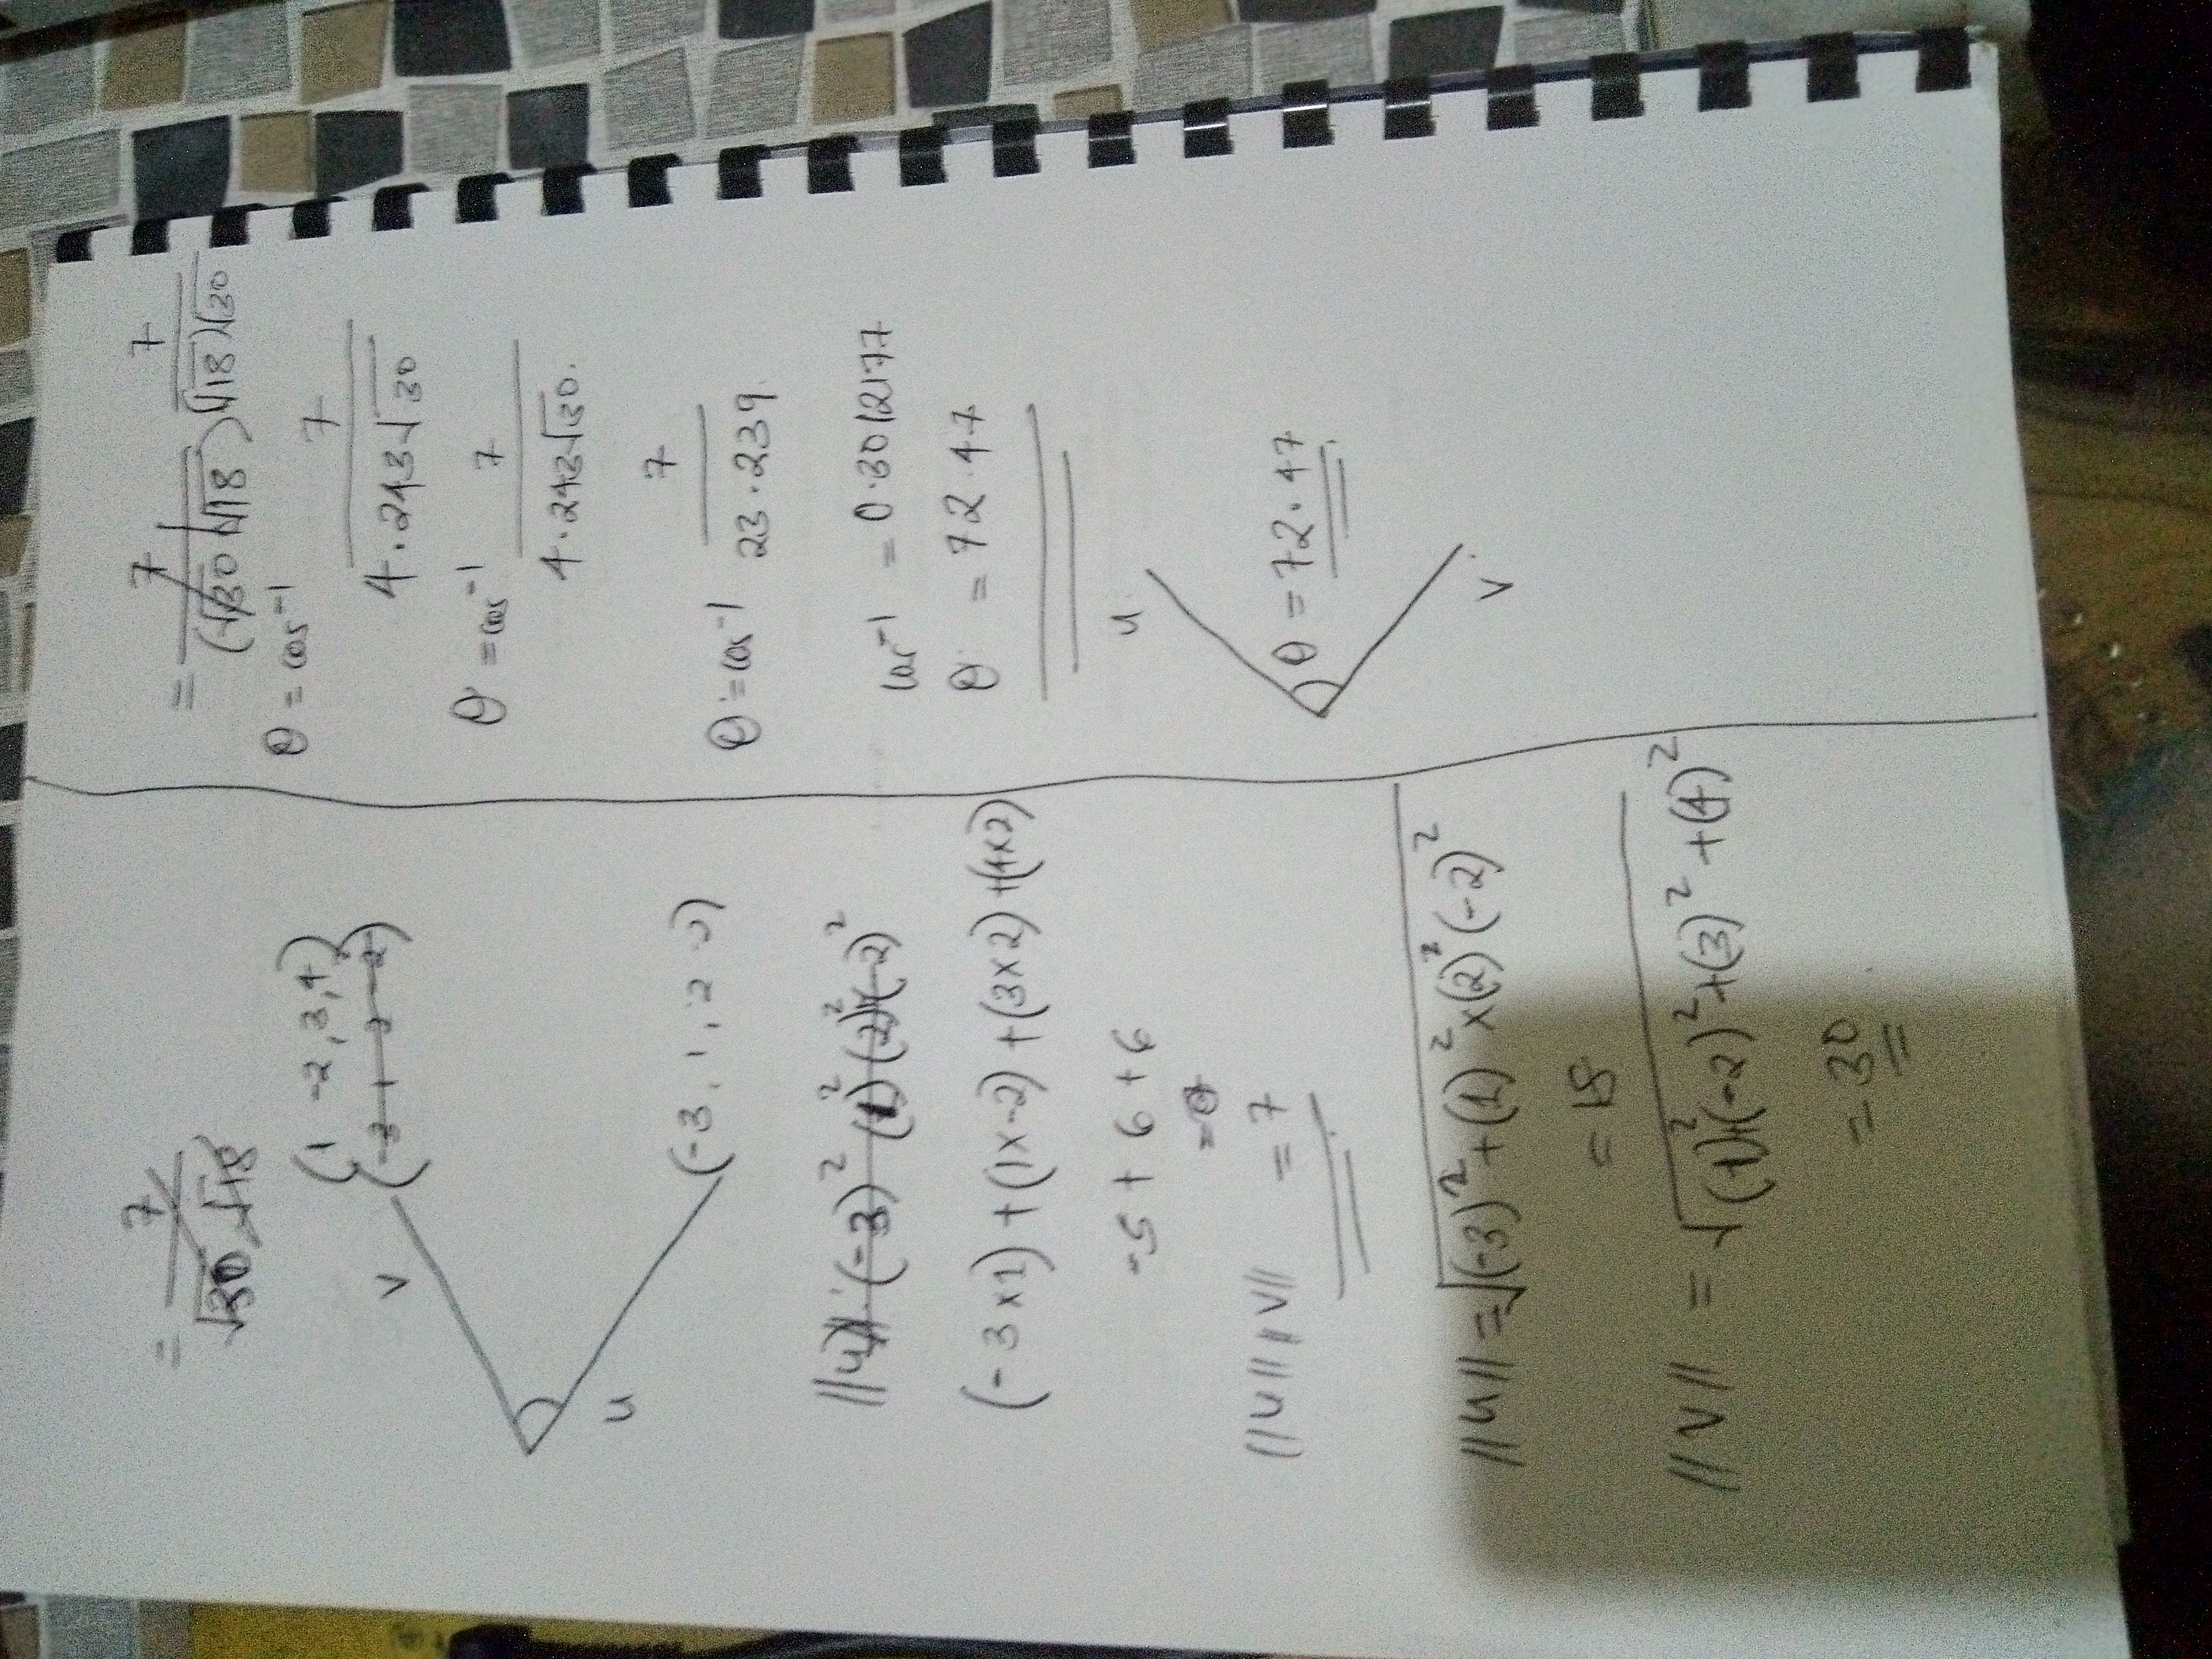 = 7 / √30 √18
v (1 -2, 3, 4)
(-3 1 3 -2)
u (-3, 1, 2
||u|| (-3)² (1)² (2)² (-2)²
(-3 x1) + (1x-2) + (3x2) + (4x2)
-5 + 6 + 6
||u|| ||v|| = 7
||u|| = √(-3)² + (1)² x(2)² (-2)²
= 18
||v|| = √(1)² (-2)² + (3)² + (4)²
= 30
= 7 / (√30 √18) 7 / (√18) √30
θ = cos⁻¹ 7 / 4.243√30
θ = cos⁻¹ 7 / 4.243√30.
θ = cos⁻¹ 7 / 23.239.
cos⁻¹ = 0.3012177
θ = 72.47
u
θ = 72.47
v